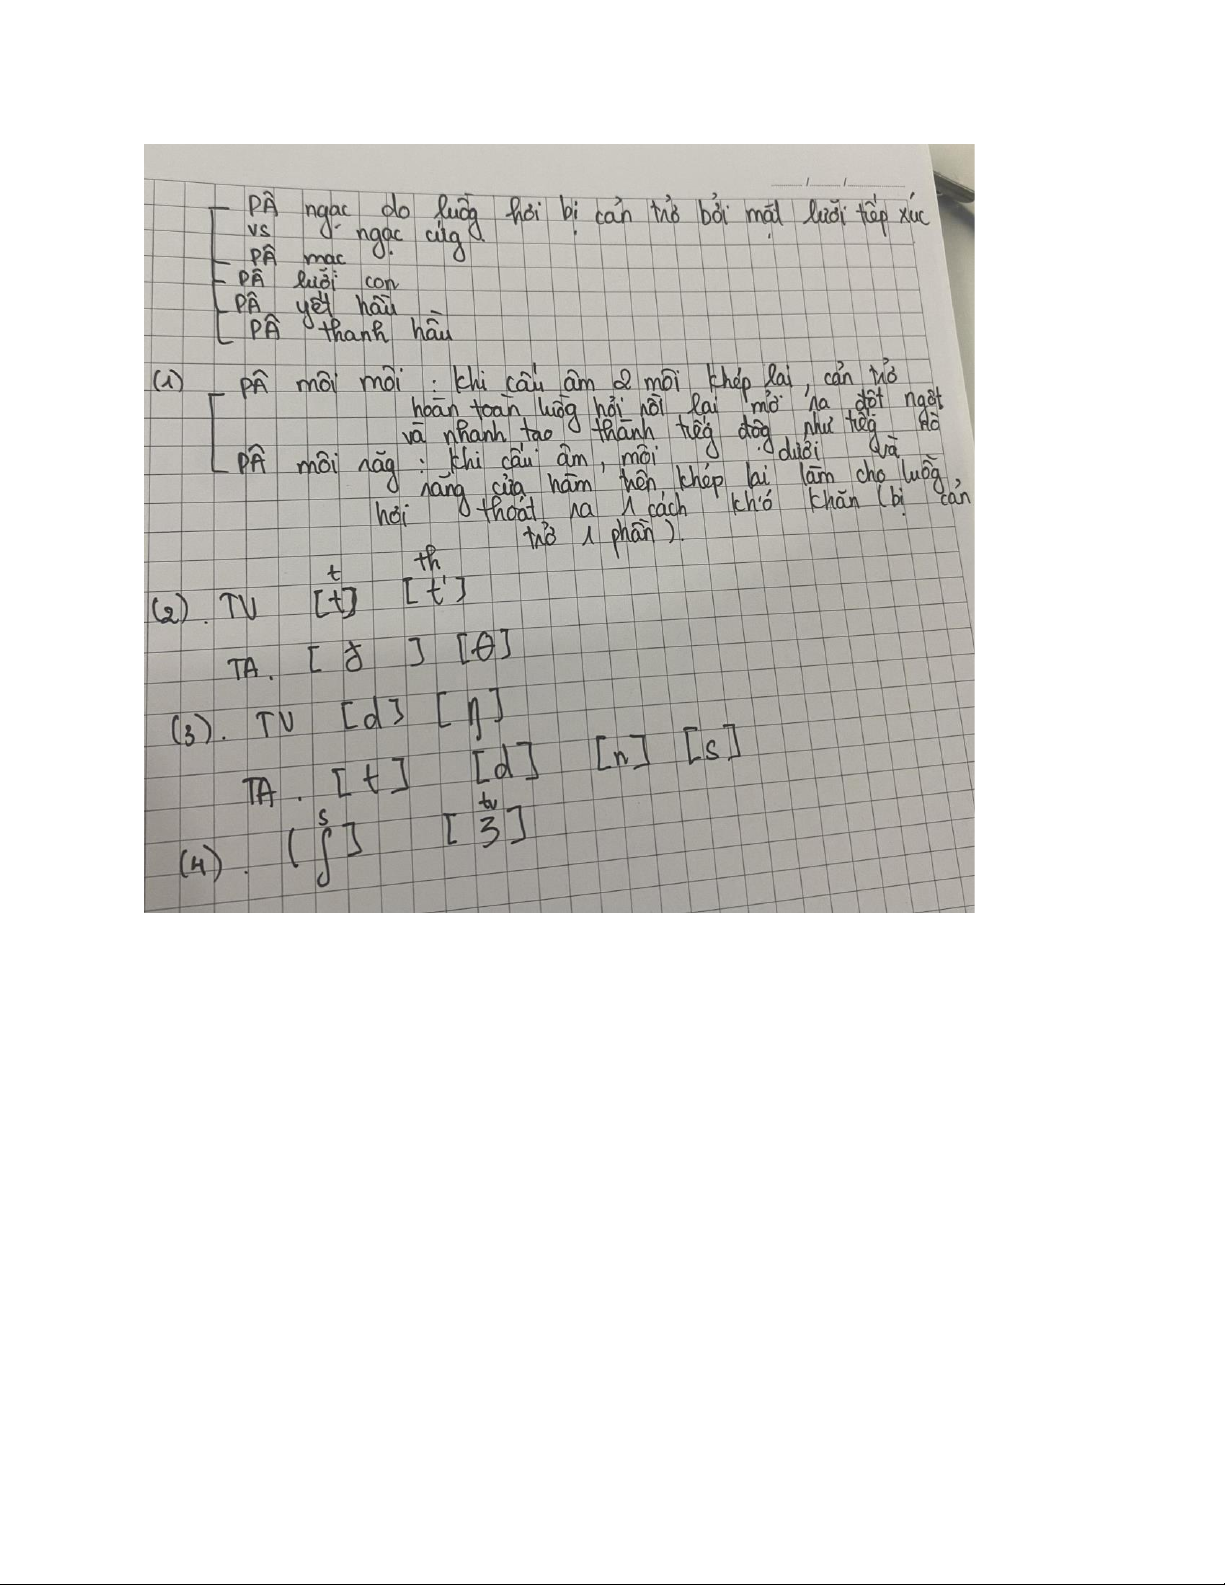 PÂ ngạc do luồg hơi bị cản trở bởi mặt lưỡi tiếp xúc
vs ngạc cứg
PÂ mạc
PÂ lưỡi con
PÂ yết hầu
PÂ thanh hầu
(1) PÂ môi môi : khi cấu âm 2 môi khép lại, cản trở
hoàn toàn luồg hơi rồi lại mở ra đột ngột
và nhanh tạo thành tiếg độg như tiếg nổ
PÂ môi răg : khi cấu âm, môi dưới và
răng của hàm trên khép lại làm cho luồg
hơi thoát ra 1 cách khó khăn (bị cản
trở 1 phần).
t th
(2). TV [t] [t']
TA. [ ð ] [θ]
(3). TV [d] [η]
TA. [t] [d] [n] [s]
s tv
(4). [ʃ] [ʒ]